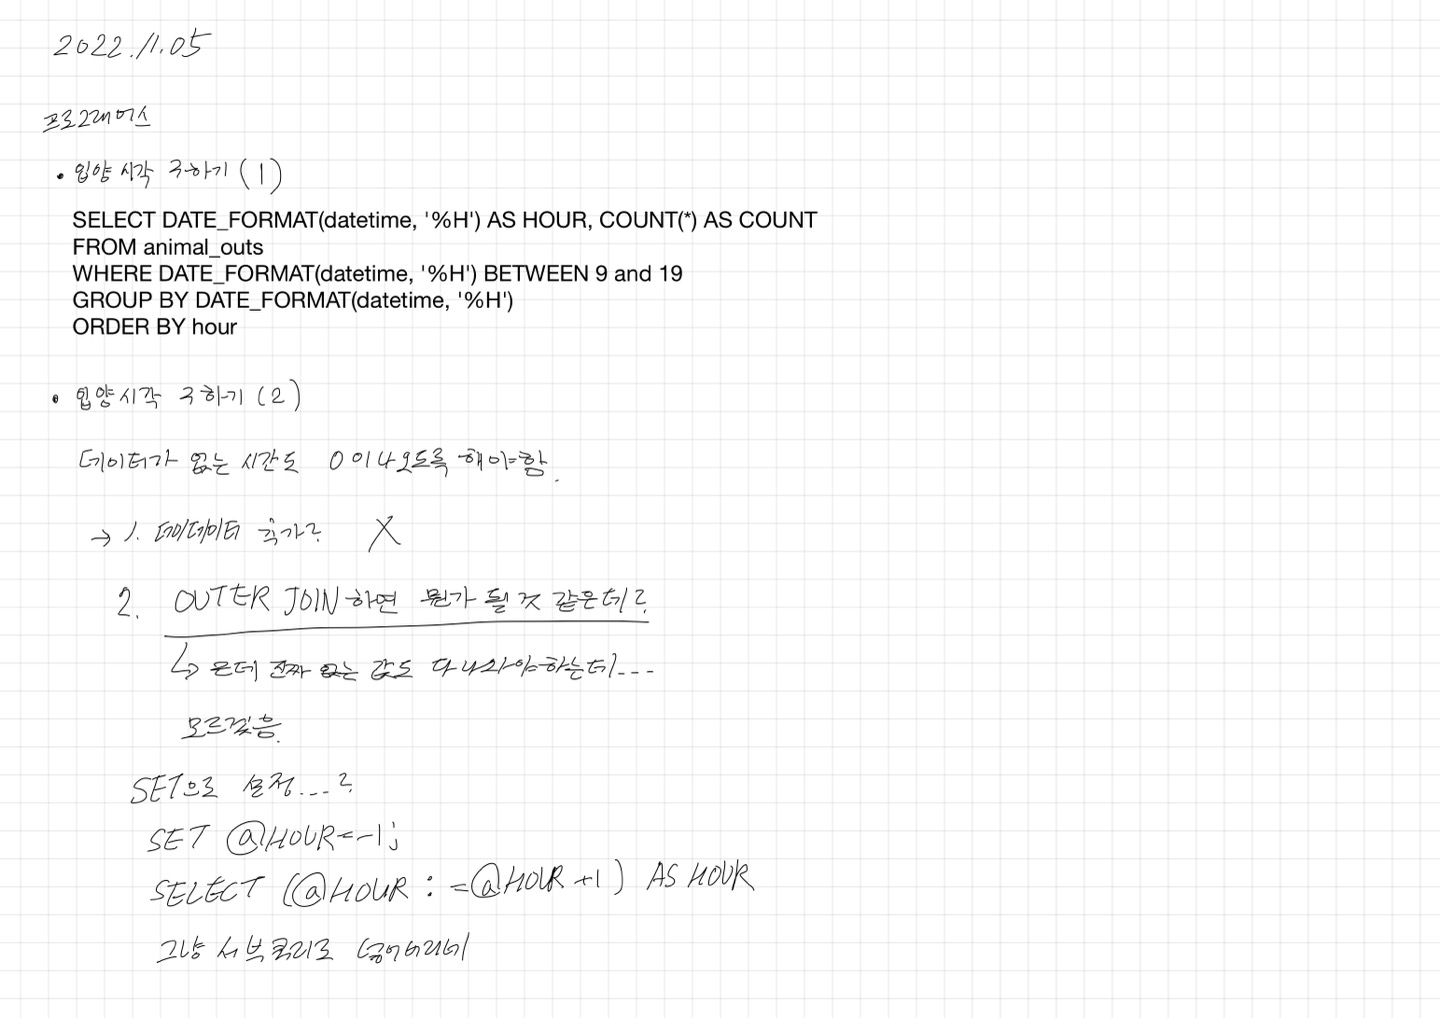 2022.11.05
프로그래머스
• 입양 시각 구하기 (1)
SELECT DATE_FORMAT(datetime, '%H') AS HOUR, COUNT(*) AS COUNT
FROM animal_outs
WHERE DATE_FORMAT(datetime, '%H') BETWEEN 9 and 19
GROUP BY DATE_FORMAT(datetime, '%H')
ORDER BY hour
• 입양시각 구하기 (2)
데이터가 없는 시간도 0이 나오도록 해야함.
→ 1. 더미데이터 추가? X
2. OUTER JOIN 하면 뭔가 될 것 같은데?
↳ 근데 진짜 없는 값도 다 나와야하는데...
모르겠음.
SET으로 설정...?
SET @HOUR=-1;
SELECT (@HOUR:=@HOUR+1) AS HOUR
그냥 서브쿼리로 넣어버리네